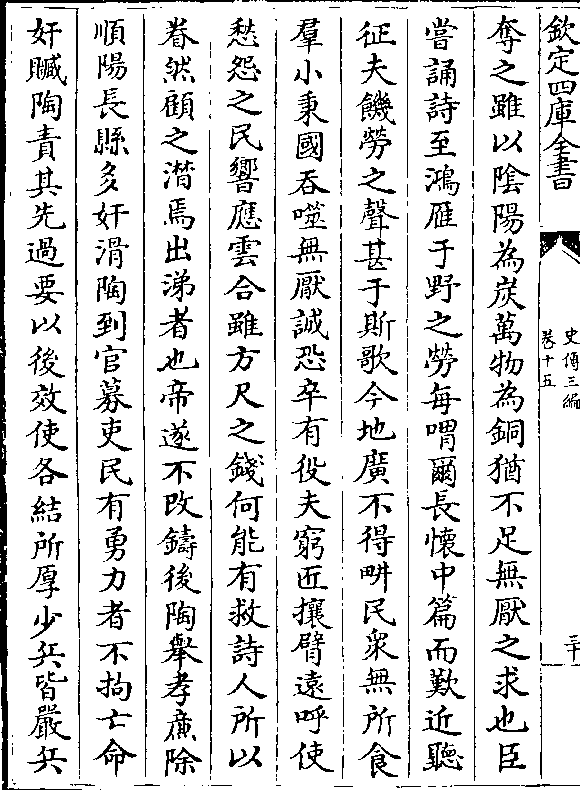 欽定四庫全書
史傳三編
卷十五
三十
奪之雖以陰陽為炭萬物為銅猶不足無厭之求也臣
嘗誦詩至鴻雁于野之勞每喟爾長懷中篇而歎近聽
征夫饑勞之聲甚于斯歌今地廣不得畊民衆無所食
羣小秉國吞噬無厭誠恐卒有役夫窮匠攘臂遠呼使
愁怨之民響應雲合雖方尺之錢何能有救詩人所以
眷然顧之潸焉出涕者也帝遂不改鑄後陶舉孝廉除
順陽長縣多奸滑陶到官募吏民有勇力者不拘亡命
奸贓陶責其先過要以後效使各結所厚少兵皆嚴兵